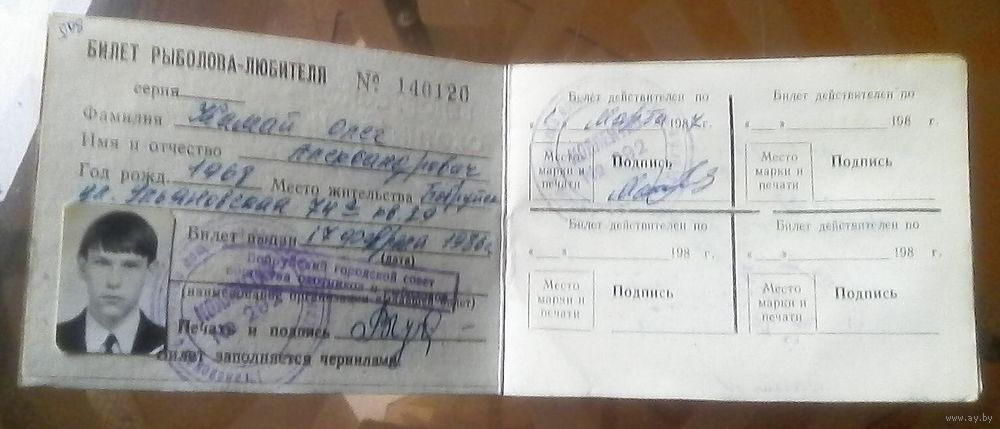 БИЛЕТ РЫБОЛОВА-ЛЮБИТЕЛЯ № 140120
серия
Фамилия Мамай Олег
Имя и отчество Александрович
Год рожд. 1968 Место жительства Бобруйск
ул. Ульяновская 74 кв 20
Билет выдан 17 февраля 1986г.
(дата)
Бобруйский городской совет
общества охотников и рыболовов
(наименование организации выдавшей билет)
Печать и подпись
Билет заполняется чернилами
Билет действителен по
« 1 » Марта 1987 г.
Место марки и печати
Подпись
Билет действителен по
« » 198 г.
Место марки и печати
Подпись
Билет действителен по
« » 198 г.
Место марки и печати
Подпись
Билет действителен по
« » 198 г.
Место марки и печати
Подпись
www.ay.by